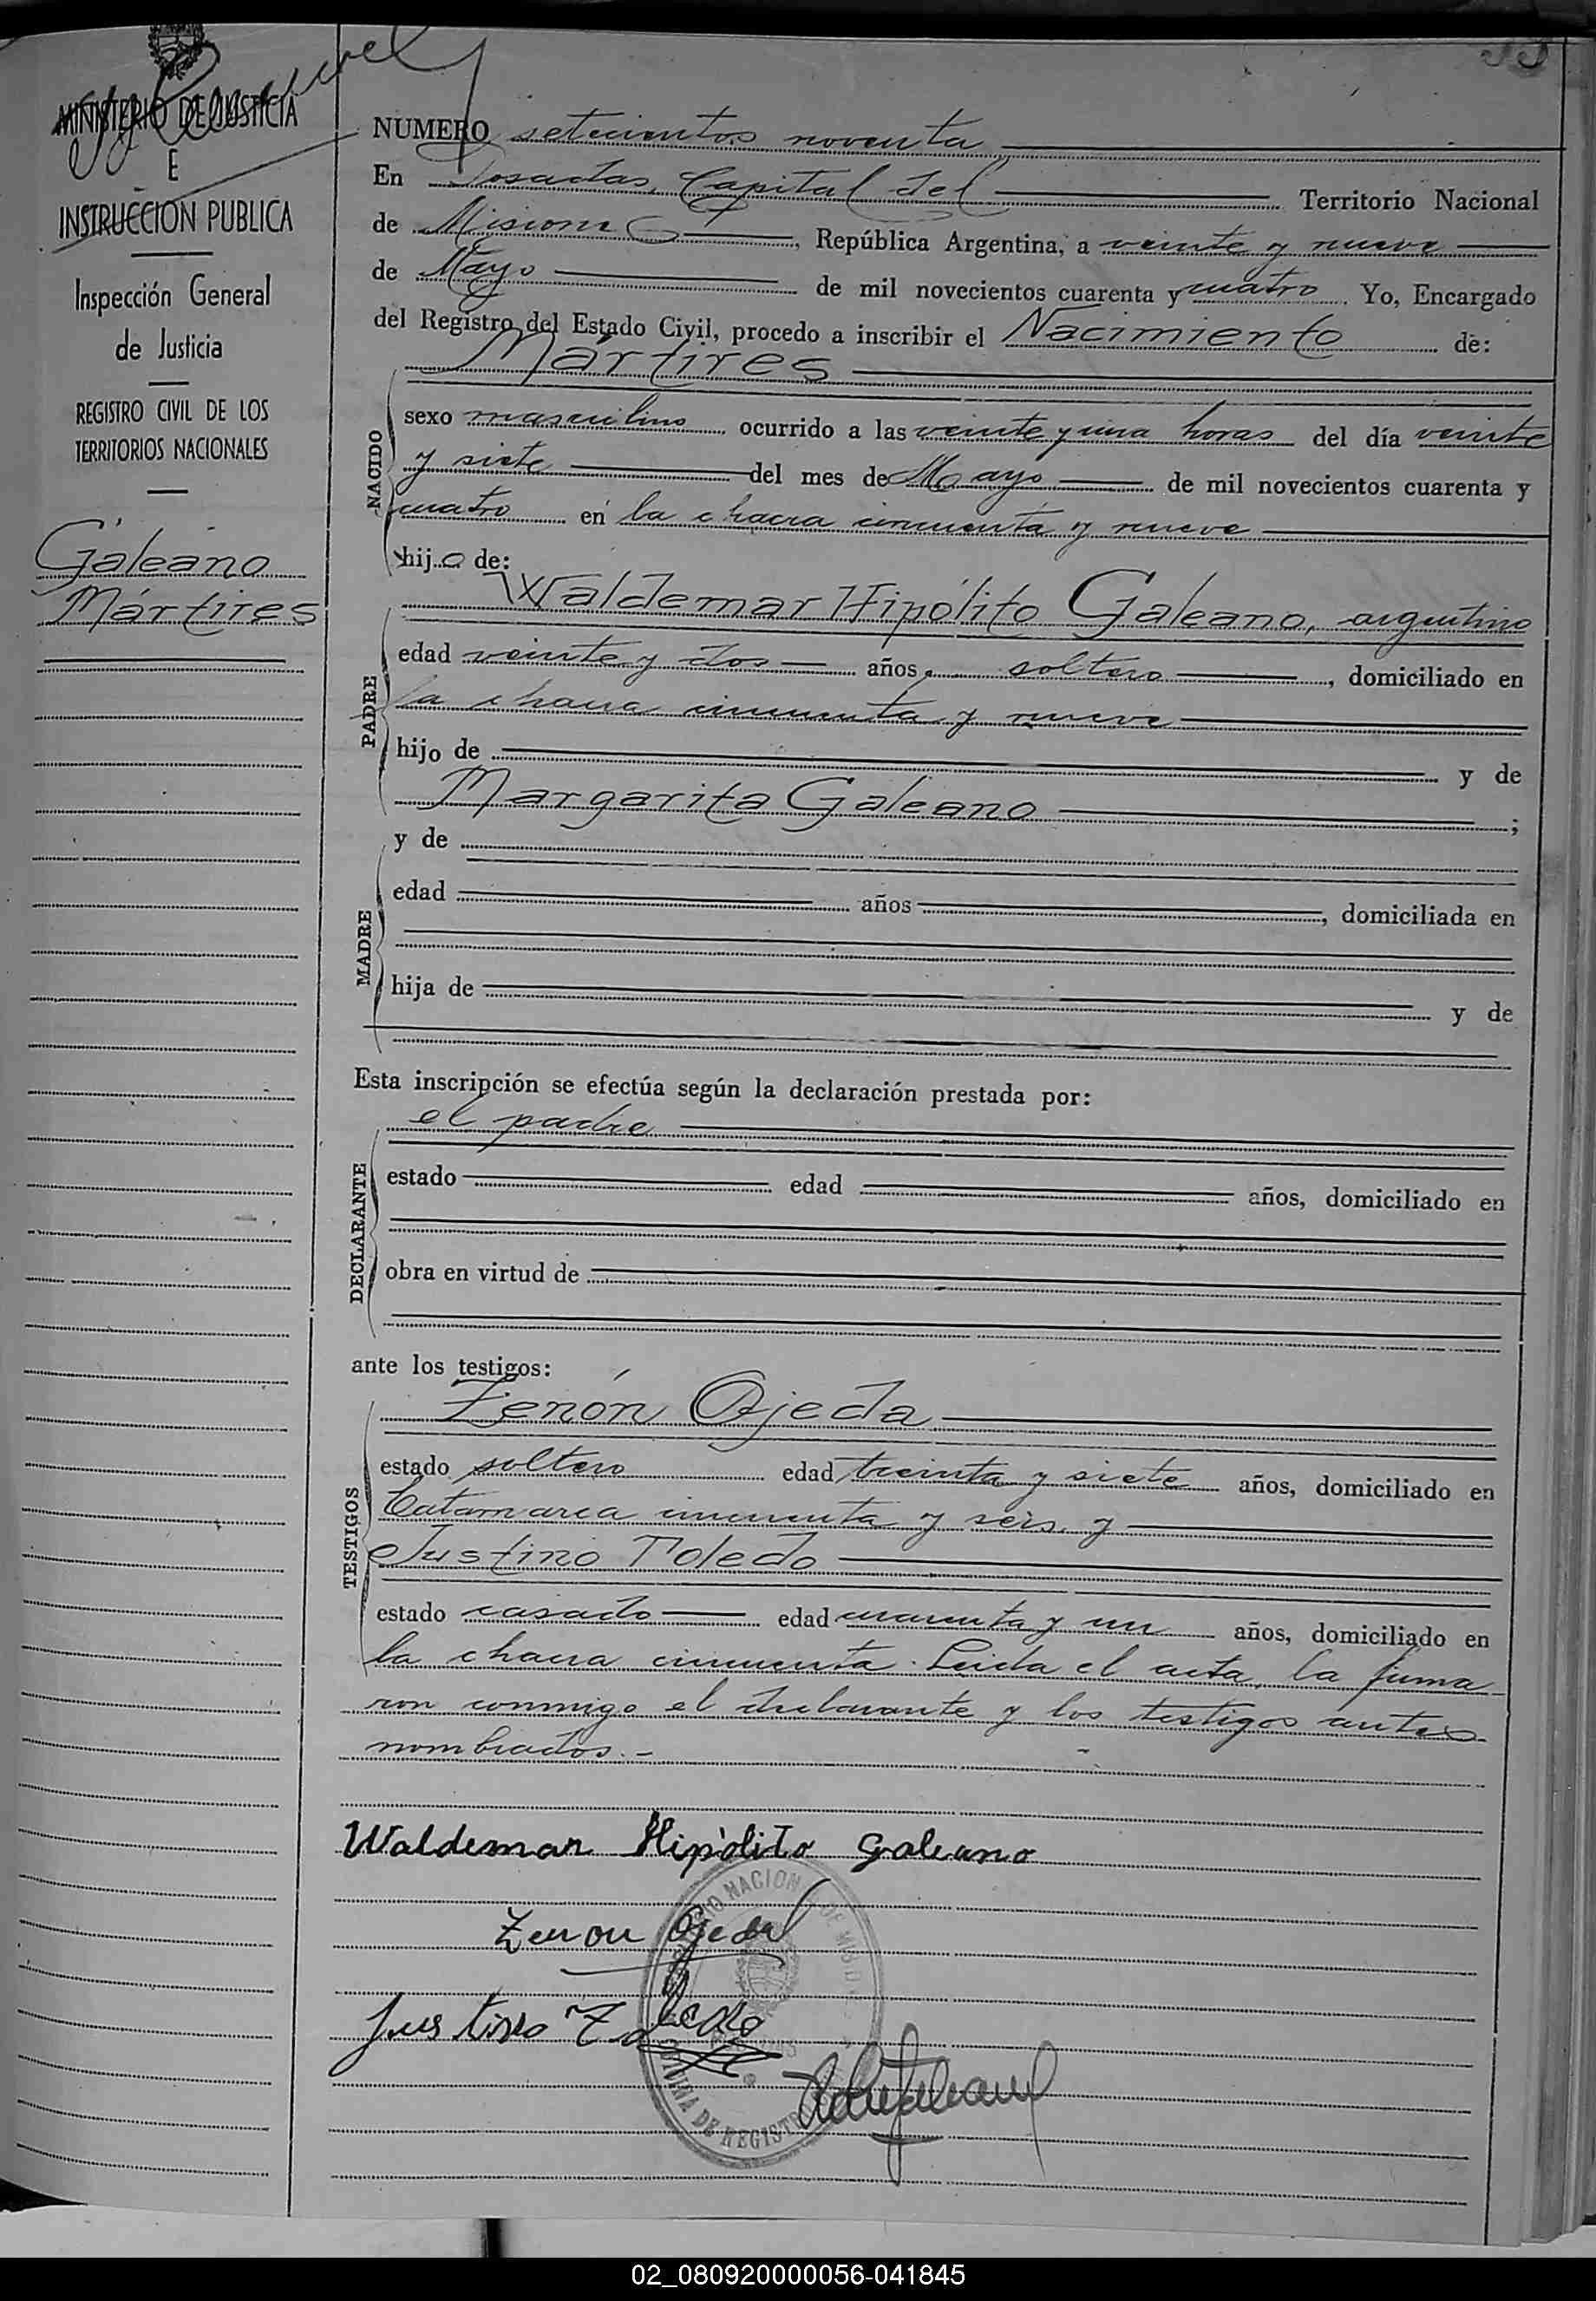 MINISTERIO DE JUSTICIA
E
INSTRUCCION PUBLICA
Inspección General
de Justicia
REGISTRO CIVIL DE LOS
TERRITORIOS NACIONALES
Galeano
Mártires
NUMERO setecientos noventa
En Posadas, Capital del Territorio Nacional
de Misiones, República Argentina, a veinte y nueve
de Mayo de mil novecientos cuarenta y cuatro. Yo, Encargado
del Registro del Estado Civil, procedo a inscribir el Nacimiento de:
Mártires
NACIDO
sexo masculino ocurrido a las veinte y una horas del día veinte
y siete del mes de Mayo de mil novecientos cuarenta y
cuatro en la chacra cincuenta y nueve
hijo de:
Waldemar Hipólito Galeano, argentino
PADRE
edad veinte y dos años, soltero, domiciliado en
la chacra cincuenta y nueve
hijo de y de
Margarita Galeano ;
y de
MADRE
edad años , domiciliada en
hija de y de
Esta inscripción se efectúa según la declaración prestada por:
el padre
DECLARANTE
estado edad años, domiciliado en
obra en virtud de
ante los testigos:
Zenón Ojeda
TESTIGOS
estado soltero edad treinta y siete años, domiciliado en
Catamarca cincuenta y seis, y
Justino Toledo
estado casado edad cuarenta y un años, domiciliado en
la chacra cincuenta. Leída el acta, la firma
ron conmigo el declarante y los testigos antes
nombrados.-
Waldemar Hipólito Galeano
Zenon Ojeda
Justino Toledo
02_080920000056-041845